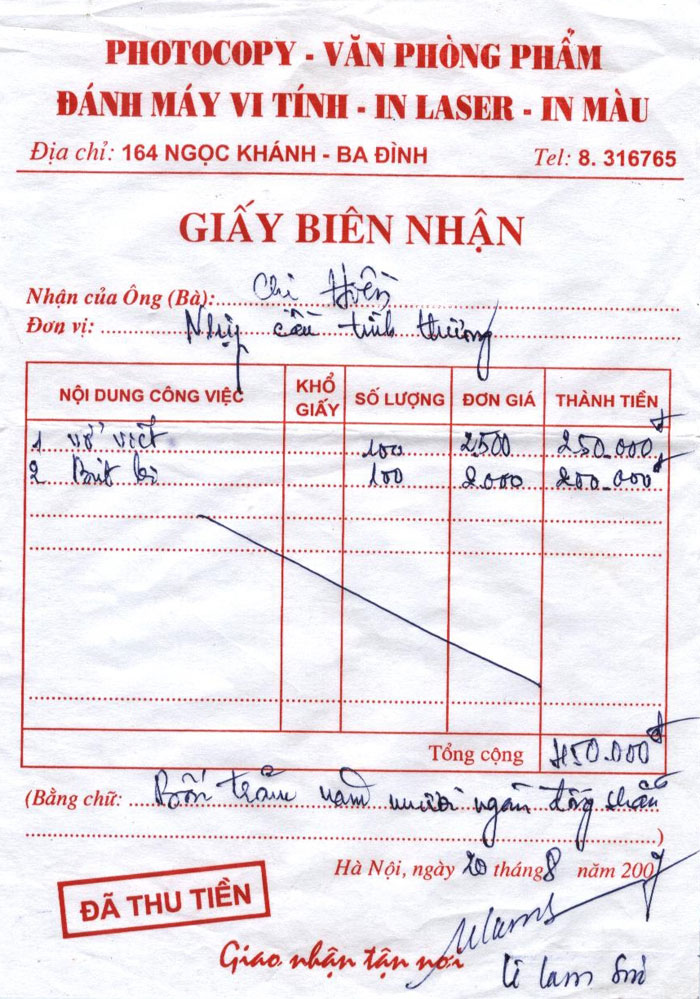 PHOTOCOPY - VĂN PHÒNG PHẨM
ĐÁNH MÁY VI TÍNH - IN LASER - IN MÀU
Địa chỉ: 164 NGỌC KHÁNH - BA ĐÌNH Tel: 8. 316765
GIẤY BIÊN NHẬN
Nhận của Ông (Bà): Chị Hiền
Đơn vị: Nhịp cầu tình thương
NỘI DUNG CÔNG VIỆC KHỔ GIẤY SỐ LƯỢNG ĐƠN GIÁ THÀNH TIỀN
1 vở viết 100 2500 250.000đ
2 Bút bi 100 2000 200.000đ
Tổng cộng 450.000đ
(Bằng chữ: Bốn trăm năm mươi ngàn đồng chẵn
)
Hà Nội, ngày 20 tháng 8 năm 2007
ĐÃ THU TIỀN
Giao nhận tận nơi